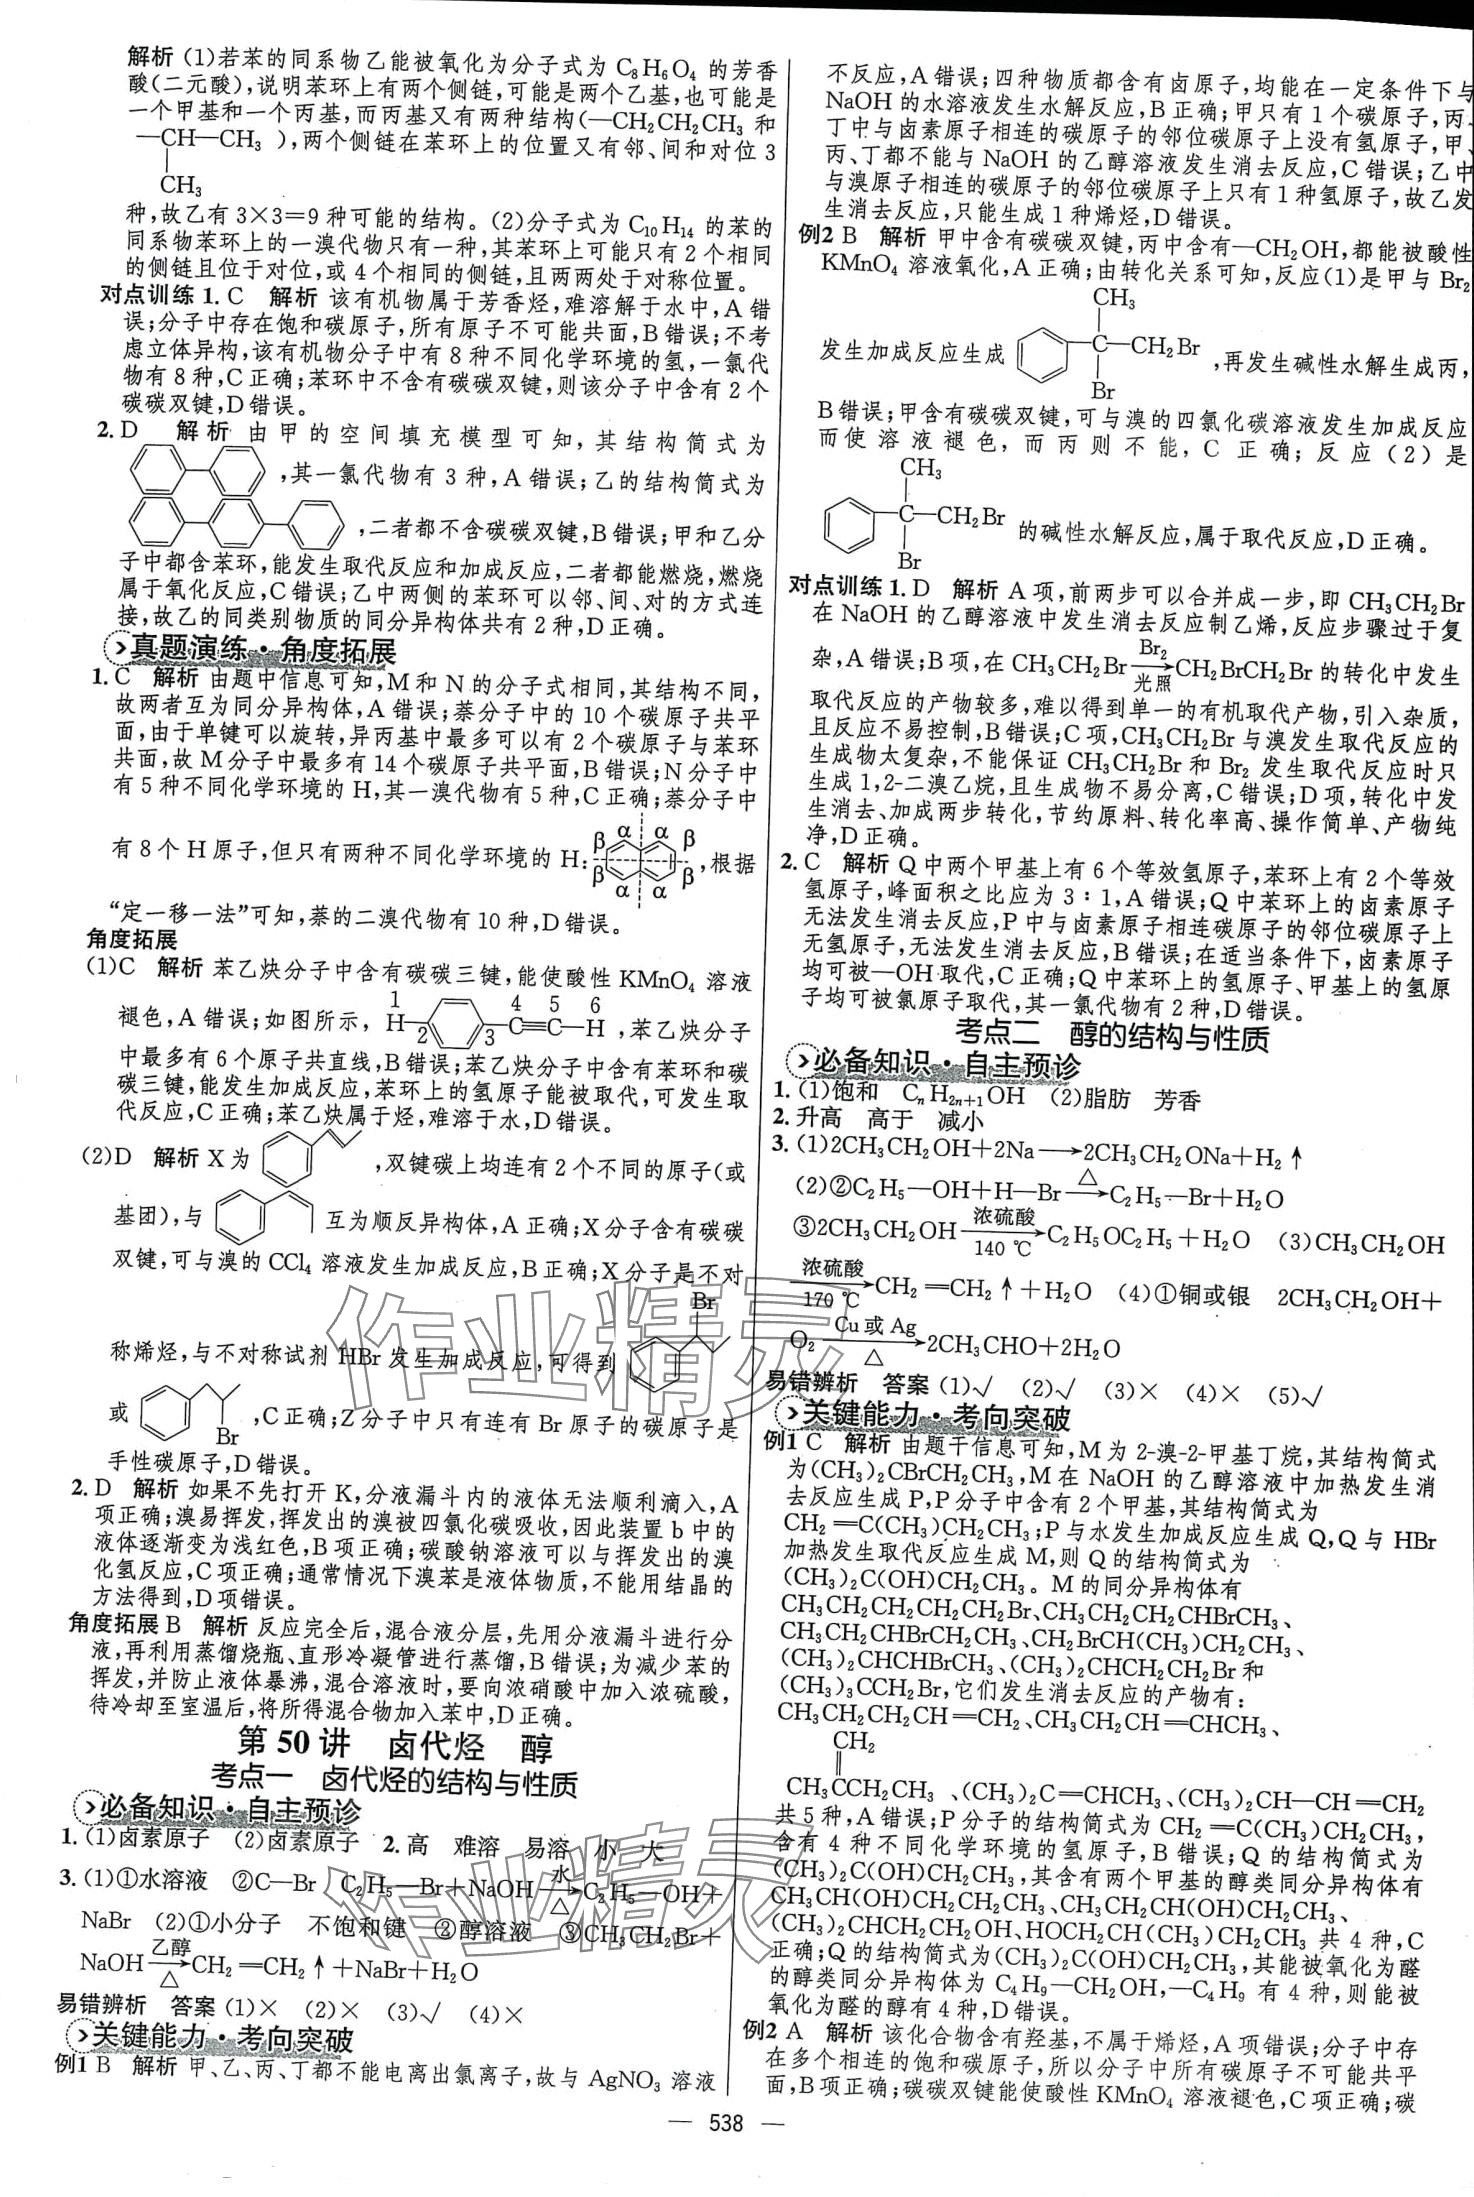 解析 (1)若苯的同系物乙能被氧化为分子式为 C₈H₆O₄ 的芳香
酸(二元酸),说明苯环上有两个侧链,可能是两个乙基,也可能是
一个甲基和一个丙基,而丙基又有两种结构(—CH₂CH₂CH₃ 和
—CH—CH₃ ),两个侧链在苯环上的位置又有邻、间和对位 3
CH₃
种,故乙有 3×3=9 种可能的结构。(2)分子式为 C₁₀H₁₄ 的苯的
同系物苯环上的一溴代物只有一种,其苯环上可能只有 2 个相同
的侧链且位于对位,或 4 个相同的侧链,且两两处于对称位置。
对点训练 1. C 解析 该有机物属于芳香烃,难溶解于水中,A 错
误;分子中存在饱和碳原子,所有原子不可能共面,B 错误;不考
虑立体异构,该有机物分子中有 8 种不同化学环境的氢,一氯代
物有 8 种,C 正确;苯环中不含有碳碳双键,则该分子中含有 2 个
碳碳双键,D 错误。
2. D 解析 由甲的空间填充模型可知,其结构简式为
,其一氯代物有 3 种,A 错误;乙的结构简式为
,二者都不含碳碳双键,B 错误;甲和乙分
子中都含苯环,能发生取代反应和加成反应,二者都能燃烧,燃烧
属于氧化反应,C 错误;乙中两侧的苯环可以邻、间、对的方式连
接,故乙的同类别物质的同分异构体共有 2 种,D 正确。
真题演练·角度拓展
1. C 解析 由题中信息可知,M 和 N 的分子式相同,其结构不同,
故两者互为同分异构体,A 错误;萘分子中的 10 个碳原子共平
面,由于单键可以旋转,异丙基中最多可以有 2 个碳原子与苯环
共面,故 M 分子中最多有 14 个碳原子共平面,B 错误;N 分子中
有 5 种不同化学环境的 H,其一溴代物有 5 种,C 正确;萘分子中
β α α β
有 8 个 H 原子,但只有两种不同化学环境的 H: ,根据
β α α β
“定一移一法”可知,萘的二溴代物有 10 种,D 错误。
角度拓展
(1)C 解析 苯乙炔分子中含有碳碳三键,能使酸性 KMnO₄ 溶液
褪色,A 错误;如图所示, 1 H—2 3—4 C≡5 C—6 H ,苯乙炔分子
中最多有 6 个原子共直线,B 错误;苯乙炔分子中含有苯环和碳
碳三键,能发生加成反应,苯环上的氢原子能被取代,可发生取
代反应,C 正确;苯乙炔属于烃,难溶于水,D 错误。
(2)D 解析 X 为 ,双键碳上均连有 2 个不同的原子(或
基团),与 互为顺反异构体,A 正确;X 分子含有碳碳
双键,可与溴的 CCl₄ 溶液发生加成反应,B 正确;X 分子是不对
Br
称烯烃,与不对称试剂 HBr 发生加成反应,可得到
或 ,C 正确;Z 分子中只有连有 Br 原子的碳原子是
Br
手性碳原子,D 错误。
2. D 解析 如果不先打开 K,分液漏斗内的液体无法顺利滴入,A
项正确;溴易挥发,挥发出的溴被四氯化碳吸收,因此装置 b 中的
液体逐渐变为浅红色,B 项正确;碳酸钠溶液可以与挥发出的溴
化氢反应,C 项正确;通常情况下溴苯是液体物质,不能用结晶的
方法得到,D 项错误。
角度拓展 B 解析 反应完全后,混合液分层,先用分液漏斗进行分
液,再利用蒸馏烧瓶、直形冷凝管进行蒸馏,B 错误;为减少苯的
挥发,并防止液体暴沸,混合溶液时,要向浓硝酸中加入浓硫酸,
待冷却至室温后,将所得混合物加入苯中,D 正确。
第 50 讲 卤代烃 醇
考点一 卤代烃的结构与性质
必备知识·自主预诊
1. (1)卤素原子 (2)卤素原子 2. 高 难溶 易溶 小 大
3. (1)①水溶液 ②C—Br C₂H₅—Br+NaOH 水 △ → C₂H₅—OH+
NaBr (2)①小分子 不饱和键 ②醇溶液 ③CH₃CH₂Br+
NaOH 乙醇 △ → CH₂═CH₂↑+NaBr+H₂O
易错辨析 答案 (1)× (2)× (3)√ (4)×
关键能力·考向突破
例1 B 解析 甲、乙、丙、丁都不能电离出氯离子,故与 AgNO₃ 溶液
不反应,A 错误;四种物质都含有卤原子,均能在一定条件下与
NaOH 的水溶液发生水解反应,B 正确;甲只有 1 个碳原子,丙、
丁中与卤素原子相连的碳原子的邻位碳原子上没有氢原子,甲、
丙、丁都不能与 NaOH 的乙醇溶液发生消去反应,C 错误;乙中
与溴原子相连的碳原子的邻位碳原子上只有 1 种氢原子,故乙发
生消去反应,只能生成 1 种烯烃,D 错误。
例2 B 解析 甲中含有碳碳双键,丙中含有—CH₂OH,都能被酸性
KMnO₄ 溶液氧化,A 正确;由转化关系可知,反应(1)是甲与 Br₂
CH₃
发生加成反应生成 C—CH₂Br ,再发生碱性水解生成丙,
Br
B 错误;甲含有碳碳双键,可与溴的四氯化碳溶液发生加成反应
而使溶液褪色,而丙则不能,C 正确;反应(2)是
CH₃
C—CH₂Br 的碱性水解反应,属于取代反应,D 正确。
Br
对点训练 1. D 解析 A 项,前两步可以合并成一步,即 CH₃CH₂Br
在 NaOH 的乙醇溶液中发生消去反应制乙烯,反应步骤过于复
杂,A 错误;B 项,在 CH₃CH₂Br Br₂ 光照 → CH₂BrCH₂Br 的转化中发生
取代反应的产物较多,难以得到单一的有机取代产物,引入杂质,
且反应不易控制,B 错误;C 项,CH₃CH₂Br 与溴发生取代反应的
生成物太复杂,不能保证 CH₃CH₂Br 和 Br₂ 发生取代反应时只
生成 1,2-二溴乙烷,且生成物不易分离,C 错误;D 项,转化中发
生消去、加成两步转化,节约原料、转化率高、操作简单、产物纯
净,D 正确。
2. C 解析 Q 中两个甲基上有 6 个等效氢原子,苯环上有 2 个等效
氢原子,峰面积之比应为 3∶1,A 错误;Q 中苯环上的卤素原子
无法发生消去反应,P 中与卤素原子相连碳原子的邻位碳原子上
无氢原子,无法发生消去反应,B 错误;在适当条件下,卤素原子
均可被—OH 取代,C 正确;Q 中苯环上的氢原子、甲基上的氢原
子均可被氯原子取代,其一氯代物有 2 种,D 错误。
考点二 醇的结构与性质
必备知识·自主预诊
1. (1)饱和 CₙH₂ₙ₊₁OH (2)脂肪 芳香
2. 升高 高于 减小
3. (1)2CH₃CH₂OH+2Na→2CH₃CH₂ONa+H₂↑
(2)②C₂H₅—OH+H—Br △ → C₂H₅—Br+H₂O
③2CH₃CH₂OH 浓硫酸 140 ℃ → C₂H₅OC₂H₅+H₂O (3)CH₃CH₂OH
浓硫酸 170 ℃ → CH₂═CH₂↑+H₂O (4)①铜或银 2CH₃CH₂OH+
O₂ Cu 或 Ag △ → 2CH₃CHO+2H₂O
易错辨析 答案 (1)√ (2)√ (3)× (4)× (5)√
关键能力·考向突破
例1 C 解析 由题干信息可知,M 为 2-溴-2-甲基丁烷,其结构简式
为(CH₃)₂CBrCH₂CH₃,M 在 NaOH 的乙醇溶液中加热发生消
去反应生成 P,P 分子中含有 2 个甲基,其结构简式为
CH₂═C(CH₃)CH₂CH₃;P 与水发生加成反应生成 Q,Q 与 HBr
加热发生取代反应生成 M,则 Q 的结构简式为
(CH₃)₂C(OH)CH₂CH₃。M 的同分异构体有
CH₃CH₂CH₂CH₂CH₂Br、CH₃CH₂CH₂CHBrCH₃、
CH₃CH₂CHBrCH₂CH₃、CH₂BrCH(CH₃)CH₂CH₃、
(CH₃)₂CHCHBrCH₃、(CH₃)₂CHCH₂CH₂Br 和
(CH₃)₃CCH₂Br,它们发生消去反应的产物有:
CH₃CH₂CH₂CH═CH₂、CH₃CH₂CH═CHCH₃、
CH₂
CH₃CCH₂CH₃ 、(CH₃)₂C═CHCH₃、(CH₃)₂CH—CH═CH₂
共 5 种,A 错误;P 分子的结构简式为 CH₂═C(CH₃)CH₂CH₃,
含有 4 种不同化学环境的氢原子,B 错误;Q 的结构简式为
(CH₃)₂C(OH)CH₂CH₃,其含有两个甲基的醇类同分异构体有
CH₃CH(OH)CH₂CH₂CH₃、CH₃CH₂CH(OH)CH₂CH₃、
(CH₃)₂CHCH₂CH₂OH、HOCH₂CH(CH₃)CH₂CH₃ 共 4 种,C
正确;Q 的结构简式为(CH₃)₂C(OH)CH₂CH₃,其能被氧化为醛
的醇类同分异构体为 C₄H₉—CH₂OH,—C₄H₉ 有 4 种,则能被
氧化为醛的醇有 4 种,D 错误。
例2 A 解析 该化合物含有羟基,不属于烯烃,A 项错误;分子中存
在多个相连的饱和碳原子,所以分子中所有碳原子不可能共平
面,B 项正确;碳碳双键能使酸性 KMnO₄ 溶液褪色,C 项正确;碳
— 538 —
作业精灵
作业精灵